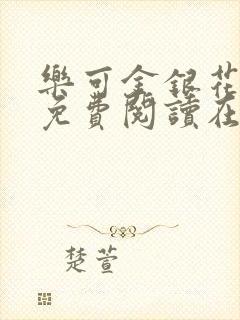 樂可金銀花
免費閱讀在
楚萱